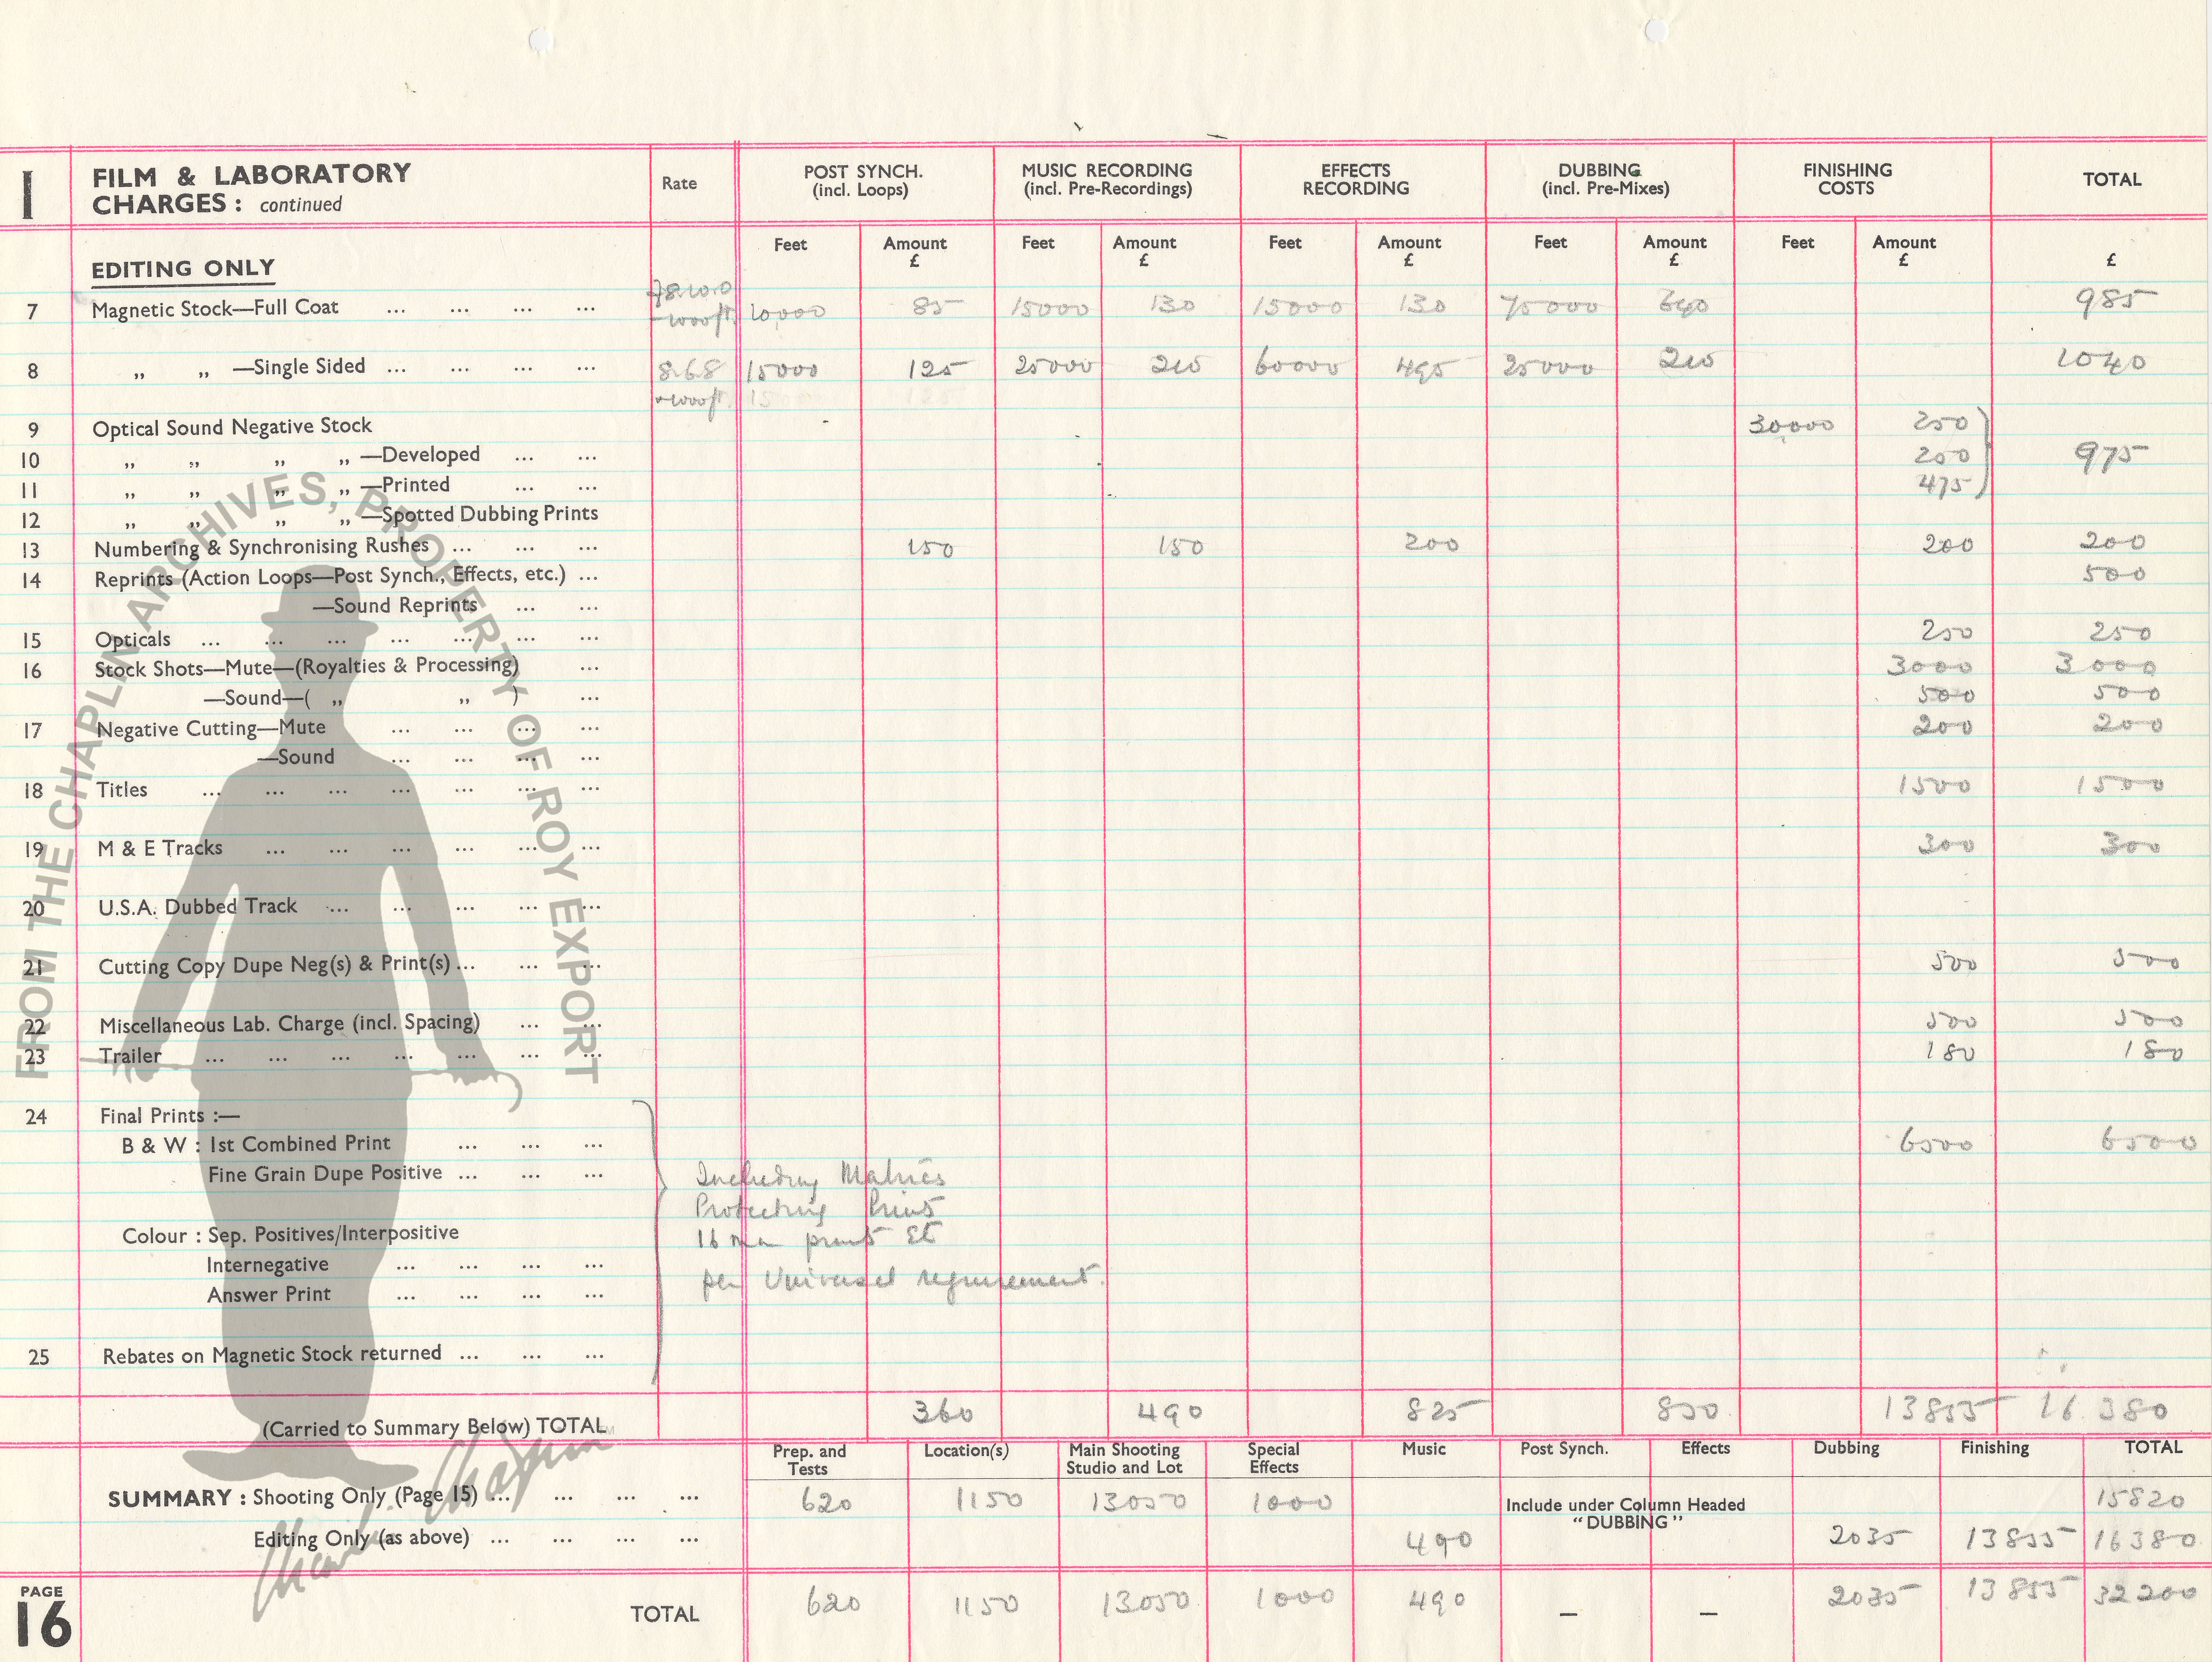 I
FILM & LABORATORY
CHARGES : continued
Rate
POST SYNCH.
(incl. Loops)
MUSIC RECORDING
(incl. Pre-Recordings)
EFFECTS
RECORDING
DUBBING
(incl. Pre-Mixes)
FINISHING
COSTS
TOTAL
EDITING ONLY
Feet Amount £ Feet Amount £ Feet Amount £ Feet Amount £ Feet Amount £ £
7 Magnetic Stock—Full Coat ... ... ... ... 10,000 85 15000 130 15000 130 75000 640 985
8 „ „ —Single Sided ... ... ... ... 8.6.8 15000 125 25000 210 60000 495 25000 210 1040
1000ft.
9 Optical Sound Negative Stock 30000 250
10 „ „ „ „ —Developed ... ... 250 975
11 „ „ „ „ —Printed ... ... 475
12 „ „ „ „ —Spotted Dubbing Prints
13 Numbering & Synchronising Rushes ... ... ... 150 150 200 200 200
14 Reprints (Action Loops—Post Synch., Effects, etc.) ... 500
—Sound Reprints ... ...
15 Opticals ... ... ... ... ... ... ... 250 250
16 Stock Shots—Mute—(Royalties & Processing) ... 3000 3000
—Sound—( „ „ ) ... 500 500
17 Negative Cutting—Mute ... ... ... ... 200 200
—Sound ... ... ... ...
18 Titles ... ... ... ... ... ... ... 1500 1500
19 M & E Tracks ... ... ... ... ... ... 300 300
20 U.S.A. Dubbed Track ... ... ... ... ...
21 Cutting Copy Dupe Neg(s) & Print(s) ... ... ... 500 500
22 Miscellaneous Lab. Charge (incl. Spacing) ... ... 500 500
23 Trailer ... ... ... ... ... ... ... 180 180
24 Final Prints :—
B & W : 1st Combined Print ... ... ... 6500 6500
Fine Grain Dupe Positive ... ... ...
Including Matrices
Protecting Print
Colour : Sep. Positives/Interpositive
16 mm prints Etc
Internegative ... ... ... ...
per Universal requirement.
Answer Print ... ... ... ...
25 Rebates on Magnetic Stock returned ... ... ...
(Carried to Summary Below) TOTAL 360 490 825 850 13855 16380
Prep. and
Tests
Location(s)
Main Shooting
Studio and Lot
Special
Effects
Music
Post Synch.
Effects
Dubbing
Finishing
TOTAL
SUMMARY : Shooting Only (Page 15) ... ... ... ... 620 1150 13050 1000 15820
Include under Column Headed
"DUBBING"
Editing Only (as above) ... ... ... ... 490 2035 13855 16380
PAGE
16
TOTAL 620 1150 13050 1000 490 — — 2035 13855 32200
FROM THE CHAPLIN ARCHIVES, PROPERTY OF ROY EXPORT
Charlie Chaplin